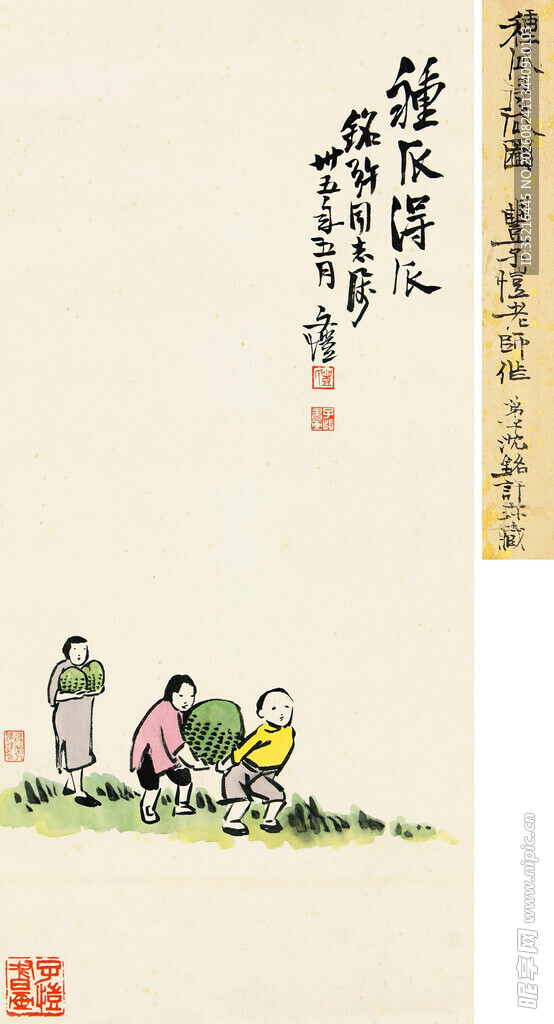 種瓜得瓜
銘許同志屬
卅五年五月 子愷
種瓜得瓜圖 豐子愷老師作 弟子沈銘許珍藏
ID:35216445 NO:20260824113440910103
昵享网 www.nipic.cn